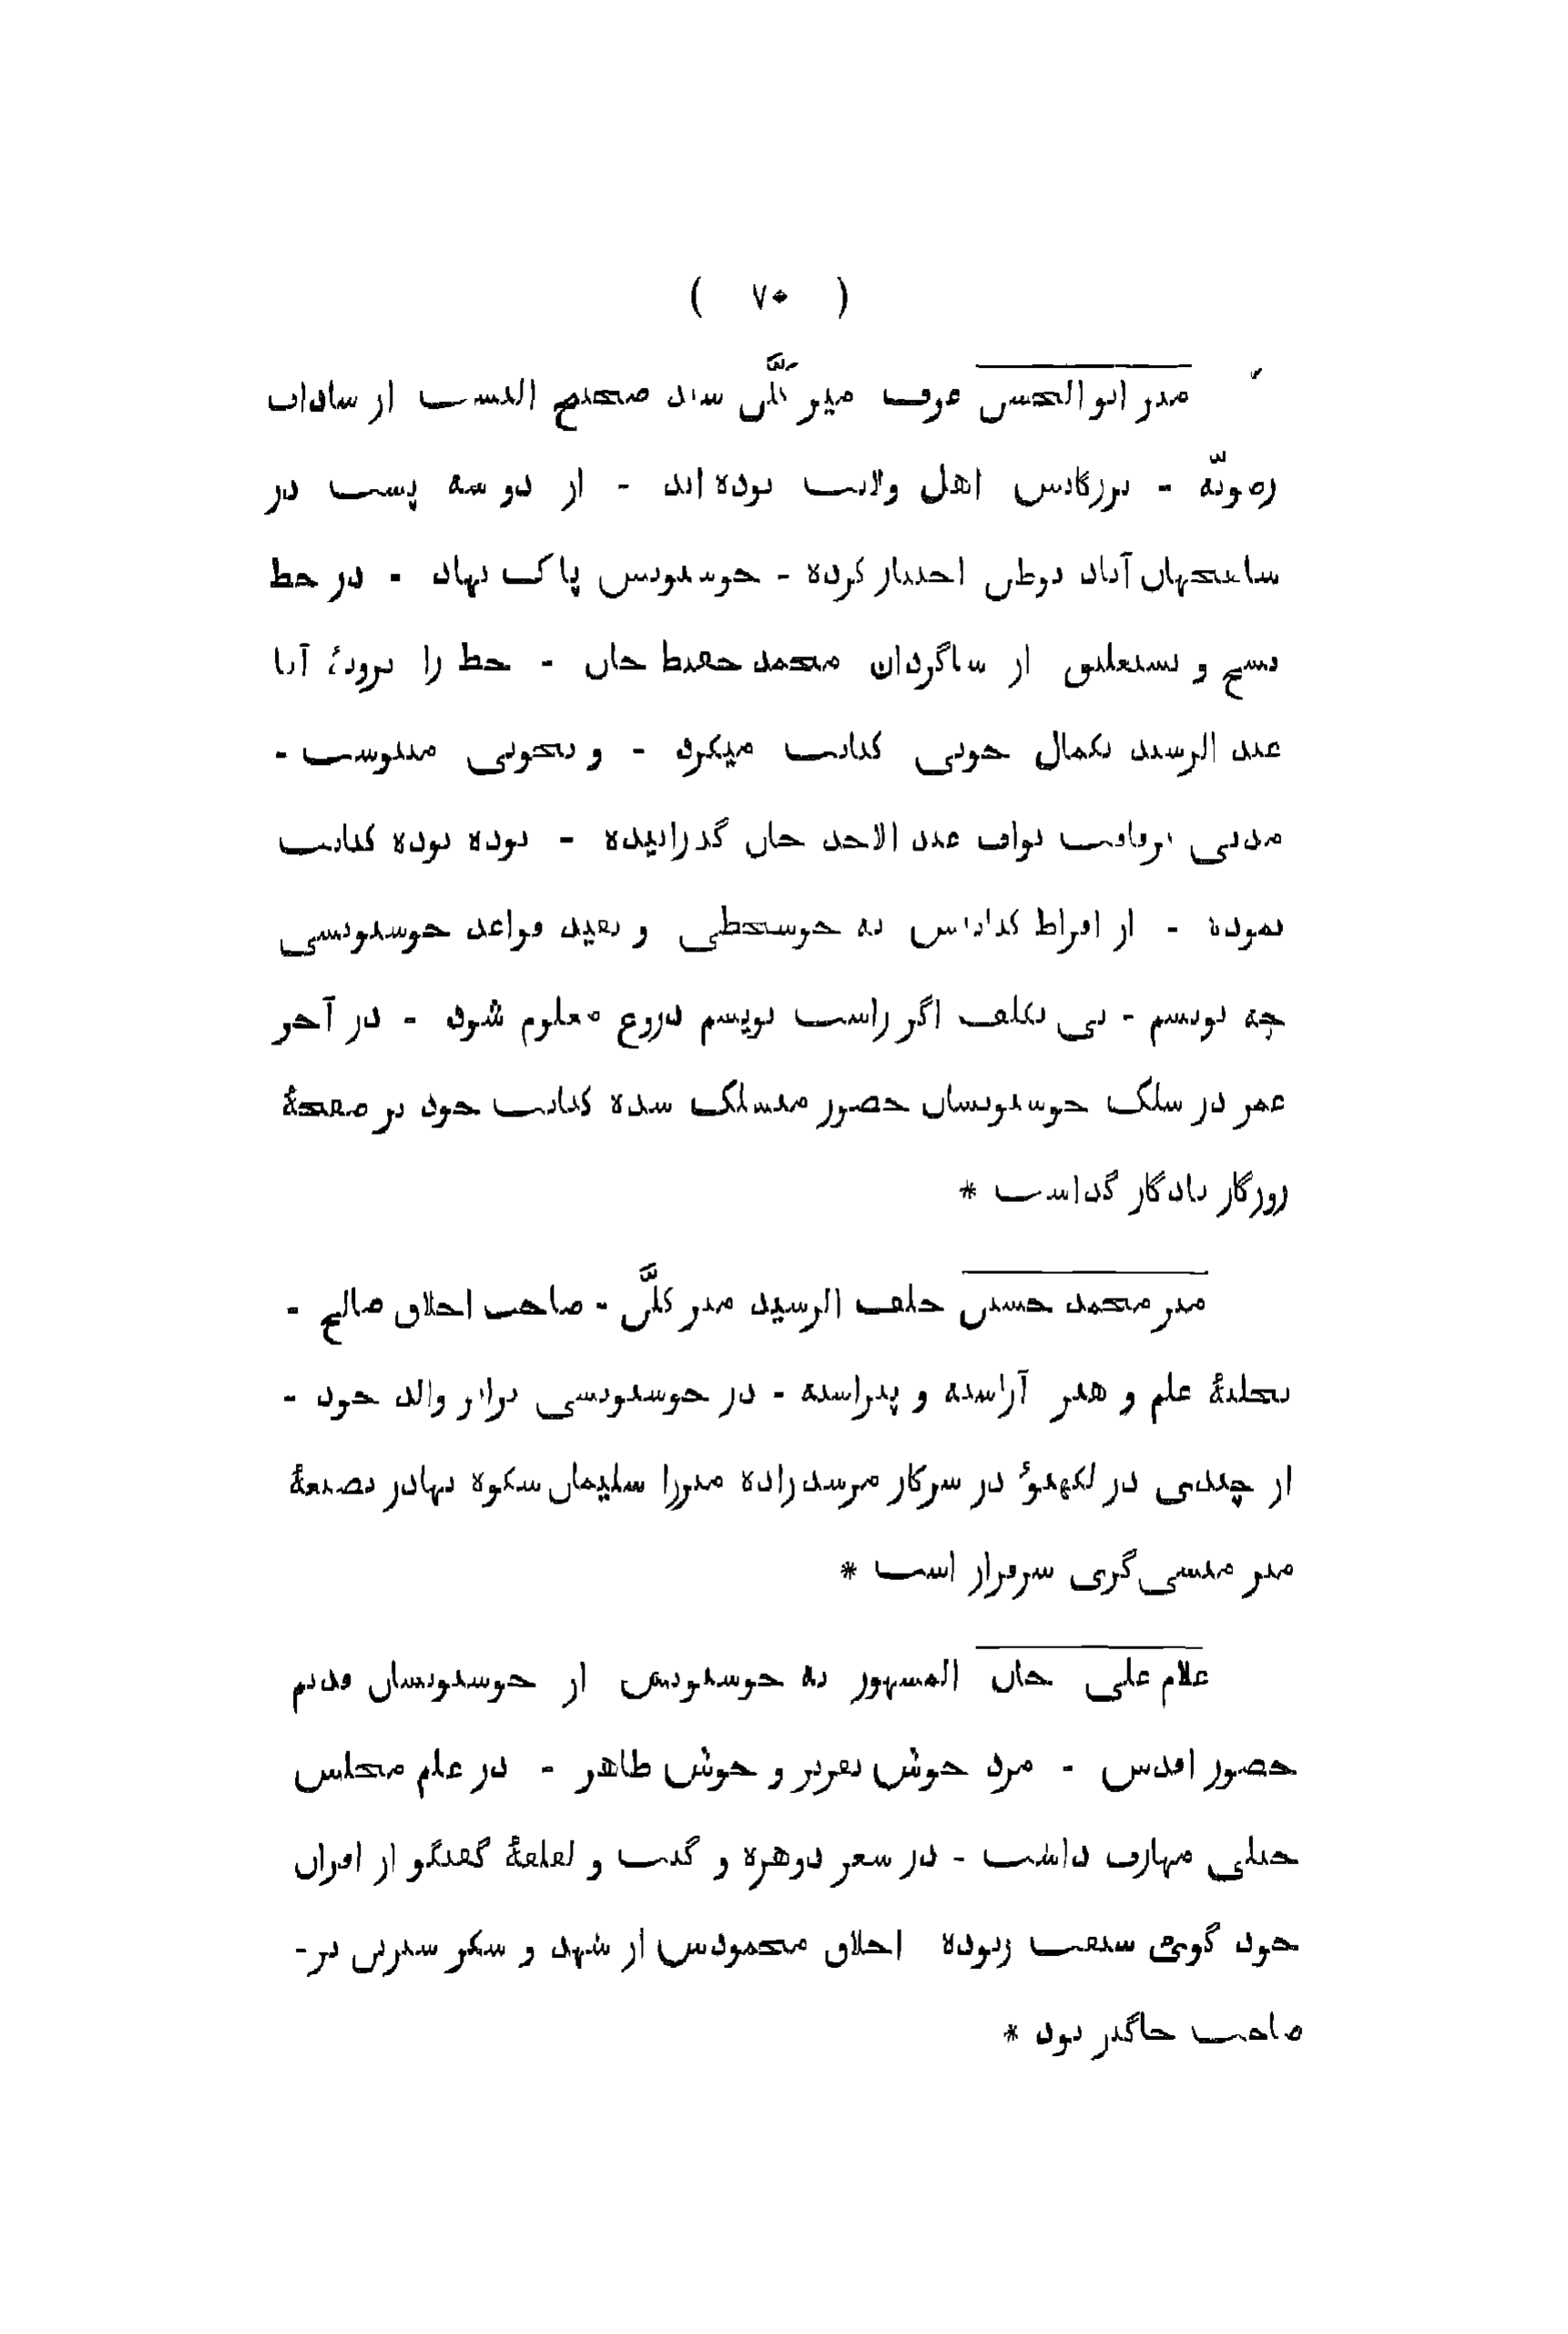 ( ۷۰ )
میر ابو الحسن عرف میر کلّن سید صحیح النسب از سادات
رضویّه - بزرگانش اهل ولایت بوده اند - از دو سه پشت در
شاهجهان آباد توطن اختیار کرده - خوشنویس پاک نهاد - در خط
نسخ و نستعلیق از شاگردان محمد حفیظ خان - خط را برویۀ آقا
عبد الرشید بکمال خوبی کتابت میکرد - و بخوبی مینوشت -
مدتی برفاقت نواب عبد الاحد خان گذرانیده - توده توده کتابت
نموده - از افراط کتابتش به خوشخطی و بقید قواعد خوشنویسی
چه نویسم - بی تکلف اگر راست نویسم دروغ معلوم شود - در آخر
عمر در سلک خوشنویسان حضور منسلک شده کتابت خود بر صفحۀ
روزگار یادگار گذاشت *
میر محمد حسین خلف الرشید میر کلّن - صاحب اخلاق صالح -
بحلیۀ علم و هنر آراسته و پیراسته - در خوشنویسی برابر والد خود -
از چندی در لکهنؤ در سرکار مرشد زاده میرزا سلیمان شکوه بهادر بصیغۀ
میر منشی گری سرفراز است *
غلام علی خان المشهور به خوشنویس از خوشنویسان قدیم
حضور اقدس - مرد خوش تقریر و خوش ظاهر - در علم مجلس
خیلی مهارت داشت - در شعر دوهره و گبت و لعلعۀ گفتگو از اقران
خود گوی سبقت ربوده اخلاق محمودش از شهد و شکر شیرین تر -
صاحب جاگیر بود *